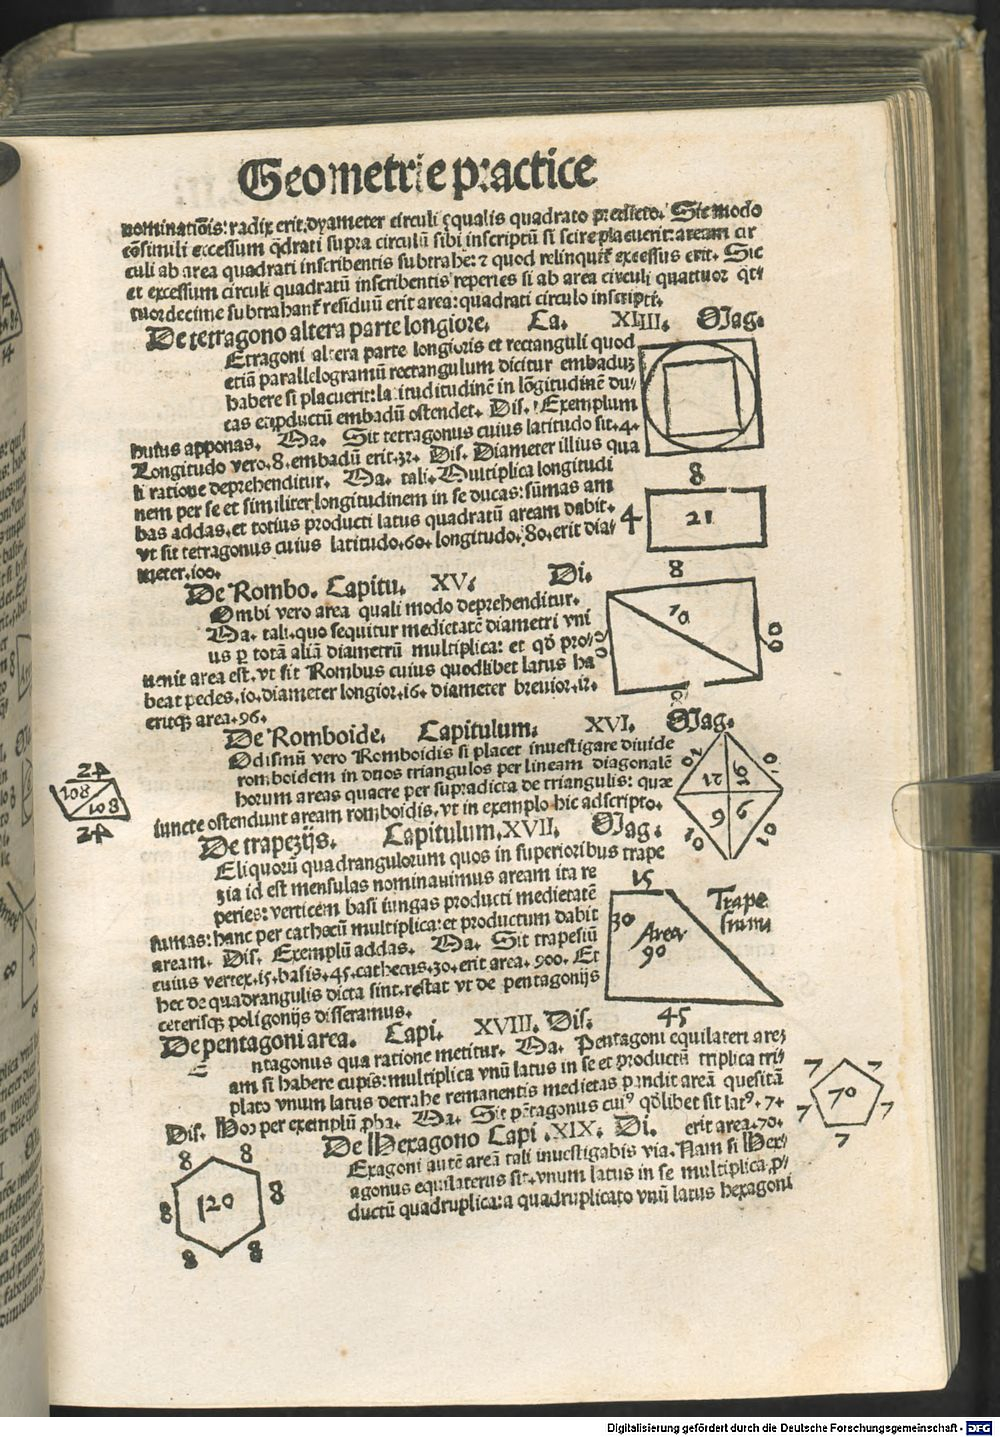 Geometrie practice
nominatiõis: radix erit. dyameter circuli ęqualis quadrato predicto. Sic modo
cõsimili excessum q̃drati supra circulũ sibi inscriptũ si scire placuerit: aream cir
culi ab area quadrati inscribentis subtrahe: ⁊ quod relinquit᷑ excessus erit. Sic
et excessum circuli quadratũ inscribentis reperies si ab area circuli quattuor q̃t
tuordecime subtrahant᷑ residuũ erit area: quadrati circulo inscripti.
De tetragono altera parte longiore. Ca. XIIII. Mag.
Etragoni altera parte longioris et rectanguli quod
etiã parallelogramũ rectangulum dicitur embaduȝ
habere si placuerit: latituditudinẽ in lõgitudinẽ du/
cas ectpductũ embadũ ostendet. Dis. Exemplum
huius apponas. Ma. Sit tetragonus cuius latitudo sit .4.
Longitudo vero .8. embadũ erit .32. Dis. Diameter illius qua
li ratione deprehenditur. Ma. tali. Multiplica longitudi
nem per se et similiter longitudinem in se ducas: sũmas am
bas addas. et totius producti latus quadratũ aream dabit.
vt sit tetragonus cuius latitudo .60. longitudo .80. erit dia/
meter .100.
8
4
21
De Rombo. Capitu. XV. Di.
Ombi vero area quali modo deprehenditur.
Ma. tali. quo sequitur medietatẽ diametri vni
us ꝑ totã aliã diametrũ multiplica: et qď pro/
uenit area est. vt sit Rombus cuius quodlibet latus ha
beat pedes .10. diameter longior .16. diameter breuior .12.
eritqꝫ area .96.
8
10
De Romboide. Capitulum. XVI. Mag.
Odismũ vero Romboidis si placet inuestigare diuide
romboidem in duos triangulos per lineam diagonalẽ
horum areas quacre per supradicta de triangulis: quæ
iuncte ostendunt aream romboidis. vt in exemplo hic adscripto.
24
108
108
24
10
10
12
96
9
6
10
10
De trapezijs. Capitulum. XVII. Mag.
Eliquorũ quadrangulorum quos in superioribus trape
zia id est mensulas nominauimus aream ita re
peries: verticem basi iungas producti medietatẽ
sumas: hanc per cathecũ multiplica: et productum dabit
aream. Dis. Exemplũ addas. Ma. Sit trapesiũ
cuius vertex .15. basis .45. cathecus .30. erit area .900. Et
hec de quadrangulis dicta sint. restat vt de pentagonijs
ceterisqꝫ poligonijs disseramus.
15
30
Area
90
45
Trape
De pentagoni area. Capi. XVIII. Dis.
ntagonus qua ratione metitur. Ma. Pentagoni equilateri areȝ
am si habere cupis: multiplica vnũ latus in se et productũ triplica tri/
plato vnum latus detrahe remanentis medietas pandit areã quesitã
Dis. Hoc per exemplũ ꝓba. Ma. Sit pẽtagonus cui⁹ qďlibet sit lat⁹ .7.
erit area .70.
7
7
7
7
7
70
De Hexagono Capi. XIX. Di.
Exagoni autẽ areã tali inuestigabis via. Nam si Hex/
agonus equilaterus sit. vnum latus in se multiplica ꝓ/
ductũ quadruplica: a quadruplicato vnũ latus hexagoni
8
8
8
8
8
8
120
Digitalisierung gefördert durch die Deutsche Forschungsgemeinschaft - DFG